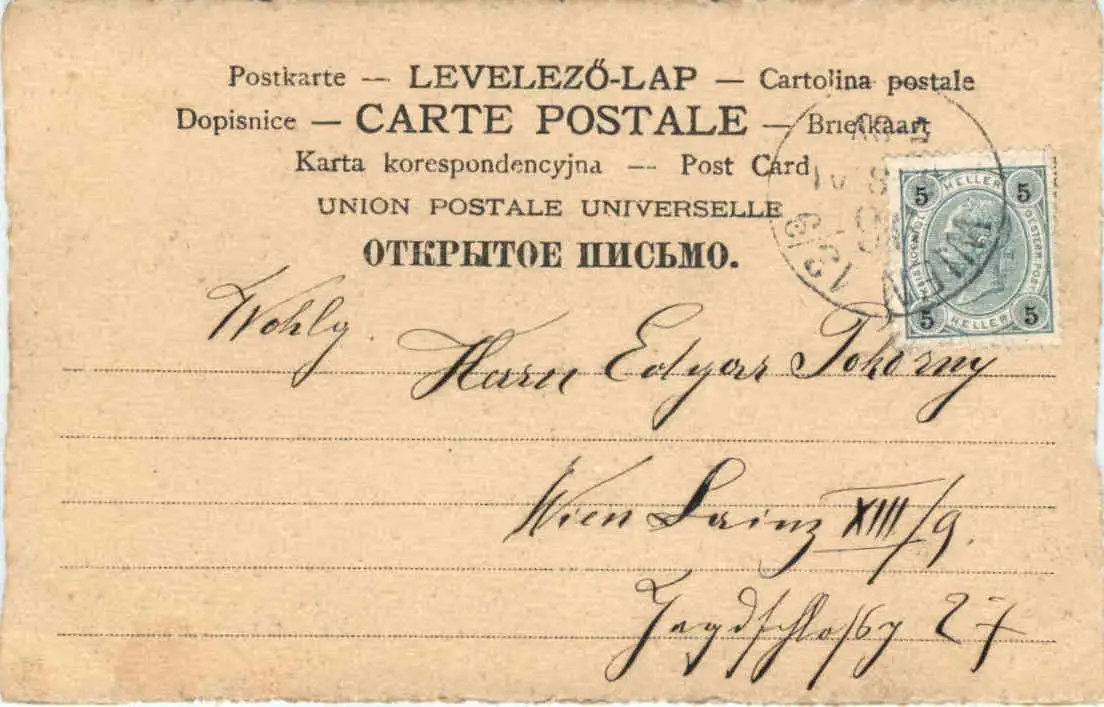 Postkarte — LEVELEZŐ-LAP — Cartolina postale
Dopisnice — CARTE POSTALE — Briefkaart
Karta korespondencyjna — Post Card
UNION POSTALE UNIVERSELLE
ОТКРЫТОЕ ПИСЬМО.
5 HELLER 5
5 HELLER 5
WIEN
13/9
Wohlg.
Herrn Edgar Pokorny
Wien Lainz XIII/9.
Jagdschloßg 27